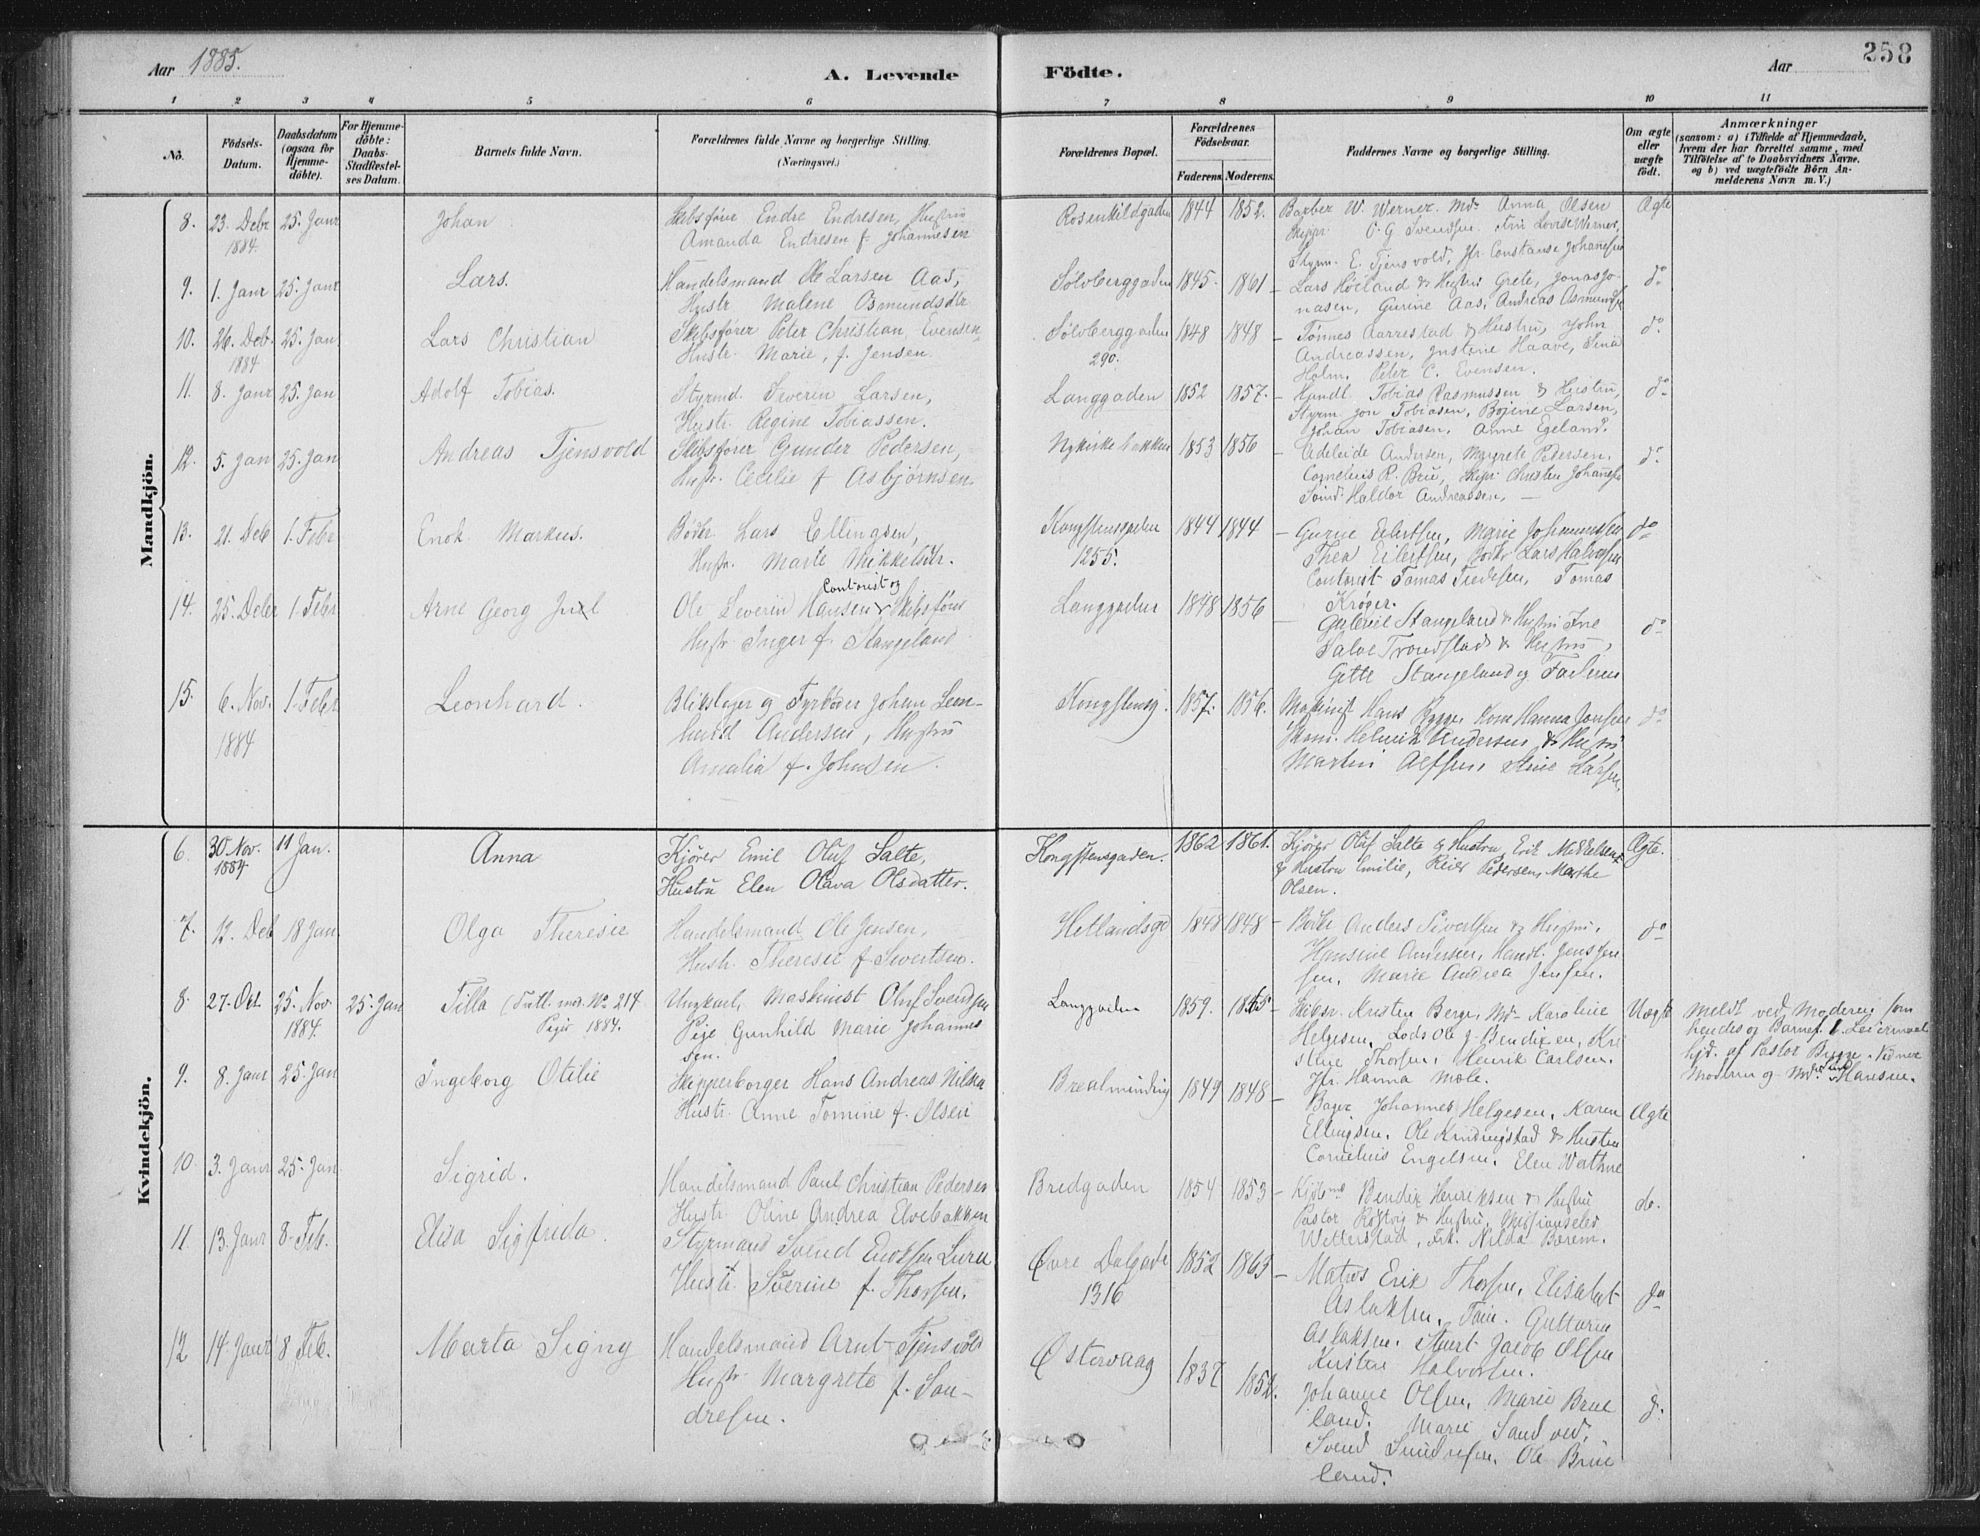 Aar 1885.
A. Levende
Födte.
Aar
258
1 2 3 4 5 6 7 8 9 10 11
No.
Födsels-
Datum.
Daabsdatum
(ogsaa for
Hjemme-
döbte).
For Hjemme-
döbte:
Daabs-
Stadfæstel-
ses Datum.
Barnets fulde Navn.
Forældrenes fulde Navne og borgerlige Stilling.
(Næringsvei.)
Forældrenes Bopæl.
Forældrenes
Födselsaar.
Faderens Moderens.
Faddernes Navne og borgerlige Stilling.
Om ægte
eller
uægte
födt.
Anmærkninger
(saasom: a) i Tilfælde af Hjemmedaab,
hvem der har forrettet samme, med
Tilföielse af to Daabsvidners Navne,
og b) ved uægtefödte Börn An-
melderens Navn m. V.)
Mandkjön.
8. 23. Debr 1884. 25. Janr
Johan
Skibsfører Endre Endresen, Hustru
Amanda Endresen f. Johannesen
Rosenkildgaden 1844 1852.
Barber W. Werner. Md. Anna Olsen
Skipr. C. G. Svendsen. Frú Lovise Werner,
Styrm. E. Tjensvold, Jfr. Constanse Johanesen
Ægte
9. 1. Janr 25. Janr
Lars.
Handelsmand Ole Larsen Aas,
Hustr. Malene Osmundsdtr
Sölvberggaden 1845. 1861
Lars Höiland & Hustru Grete, Jonas Jo-
nasen, Gurine Aas, Andreas Osmundsen
do
10. 26. Deb. 1884 25. Jan
Lars Christian
Skibsfører Peter Christian Evensen
Hustr. Marie, f. Jensen.
Sölvberggaden 290. 1848 1848
Tønnes Aarrestad & Hustru, John
Andreassen, Justine Haave, Sina
Holm. Peter C. Evensen.
do
11. 8. Janr 25. Jan
Adolf Tobias.
Styrmd. Severin Larsen,
Hustr. Regine Tobiassen.
Langgaden 1852 1857.
Handl. Tobias Rasmussen & Hustru,
Styrm. Jon Tobiasen, Bojine Larsen,
Johan Tobiasen. Anne Egeland.
do
12. 5. Jan 25. Jan
Andreas Tjensvold
Skibsfører Gunder Pedersen,
Hustr. Cecilie f Asbjørnsen
Nykirkebakken 1853 1856
Adeleide Andersen, Margrete Pedersen.
Cornelius R. Bru, Skpr Christen Johanesen
Haldor Andreassen.
do
13. 21. Deb 1. Febr
Enok Markus.
Bøder Lars Ellingsen,
Hustr. Marte Mikkelsdtr.
Kongstensgaden 1255. 1844 1844
Gurine Eilertsen, Marie
Thea Eilertsen, Lars Halvorsen
Contorist Tomas Tredesen, Tomas
Krøger.
do
14. 25. Debr 1. Febr
Arne Georg Juel
Ole Severin Hansen Contorist og Skibsfører
Hustr Inger f. Stangeland
Langgaden 1848 1856
Gabriel Stangeland & Hustru Ine
Salve Trondstad & Hustru,
Gitte Stangeland og Faderen
do
15. 6. Nov. 1884 1. Febr
Leonhard.
Blikslager og Fyrbøder Johan Leon-
hard Andersen, Hustru
Amalia f. Johnsen.
Kongstensg. 1857. 1856.
Maskinist Hans Bygge, Kone Hanna Jonsen
Henrik Andersen & Hustru
Martin Alfsen, Stine Larsen,
do
Kvindekjön.
6. 30 Nov. 1884 11 Jan.
Anna
Kjører Emil Oluf Salte,
Hustru Elen Olava Olsdatter.
Kongstensgaden. 1862 1861.
Kjører Oluf Salte & Hustru, Erik Mikkelsen
& Hustru Emilie, Reier Pedersen, Marthe
Olsen.
Ægte.
7. 12. Deb 18 Jan
Olga Theresie
Handelsmand Ole Jensen,
Hustr. Theresie f Sivertsen.
Hetlandsgd 1848 1848
Bøder Anders Sivertsen & Hustru,
Hansine Andersen, Handl. Jens Jen-
sen, Marie Andrea Jensen.
do
8 27. Oct. 25. Nov 1884. 25. Jan
Tilla (Indtl. med. No 214
Piger 1884.
Ungkarl, Maskinist Oluf Svendsen
Pige Gunhild Marie Johannes
sen.
Langgaden 1859. 1865
Skibsr. Kristen Berge, Md. Karoline
Helgesen, Lods Ole G. Bendixen, Kri
stine Thorsen, Henrik Carlsen.
Jfr. Hanna Mæle.
Uægte
Meldt ved Moderen som
hendes og Barnef. 1. Leiermaal
Hjd. af Pastor Bugge. Vidner
Moderen og Hansen.
9. 8. Janr 25. Jan
Ingeborg Otilie
Skipperborger Hans Andreas Nilsen
Hustr. Anne Tomine f. Olsen
1849 1848
Bager Johannes Helgesen, Karen
Ellingsen. Ole Kindingstad & Hustru
Cornelius Engelsen. Elen Wathne
Ægte
10. 3. Janr 25. Jan
Sigrid.
Handelsmand Paul Christian Pedersen
Hustr. Oline Andrea Elvebakken
Bredgaden 1854 1853
Bendix Henriksen & Hustru
Pastor Röstvig & Hustru, Missionselev
Witterstad, Frk. Nilda Bærem.
do.
11. 13. Janr 8. Feb.
Elisa Sigfrida.
Styrmand Svend Enoksen Lura
Hustr. Sverine f. Thorsen.
Övre Dalgade 1316 1852 1863
Matros Erik Thorsen, Elisabet
Aslaksen, Tom. Guttorm
Aslaksen. Jacob Olsen
Kristen Halvorsen.
do
12 14. Janr 8 Feb.
Marta Signy
Handelsmand Arnt Tjensvold
Hustr Margrete f. San-
dresen.
Østervaag 1837 1852.
Johanne Olsen, Marie Brue
land. Marie Sandved,
Svend Ole Brue
land.
d.